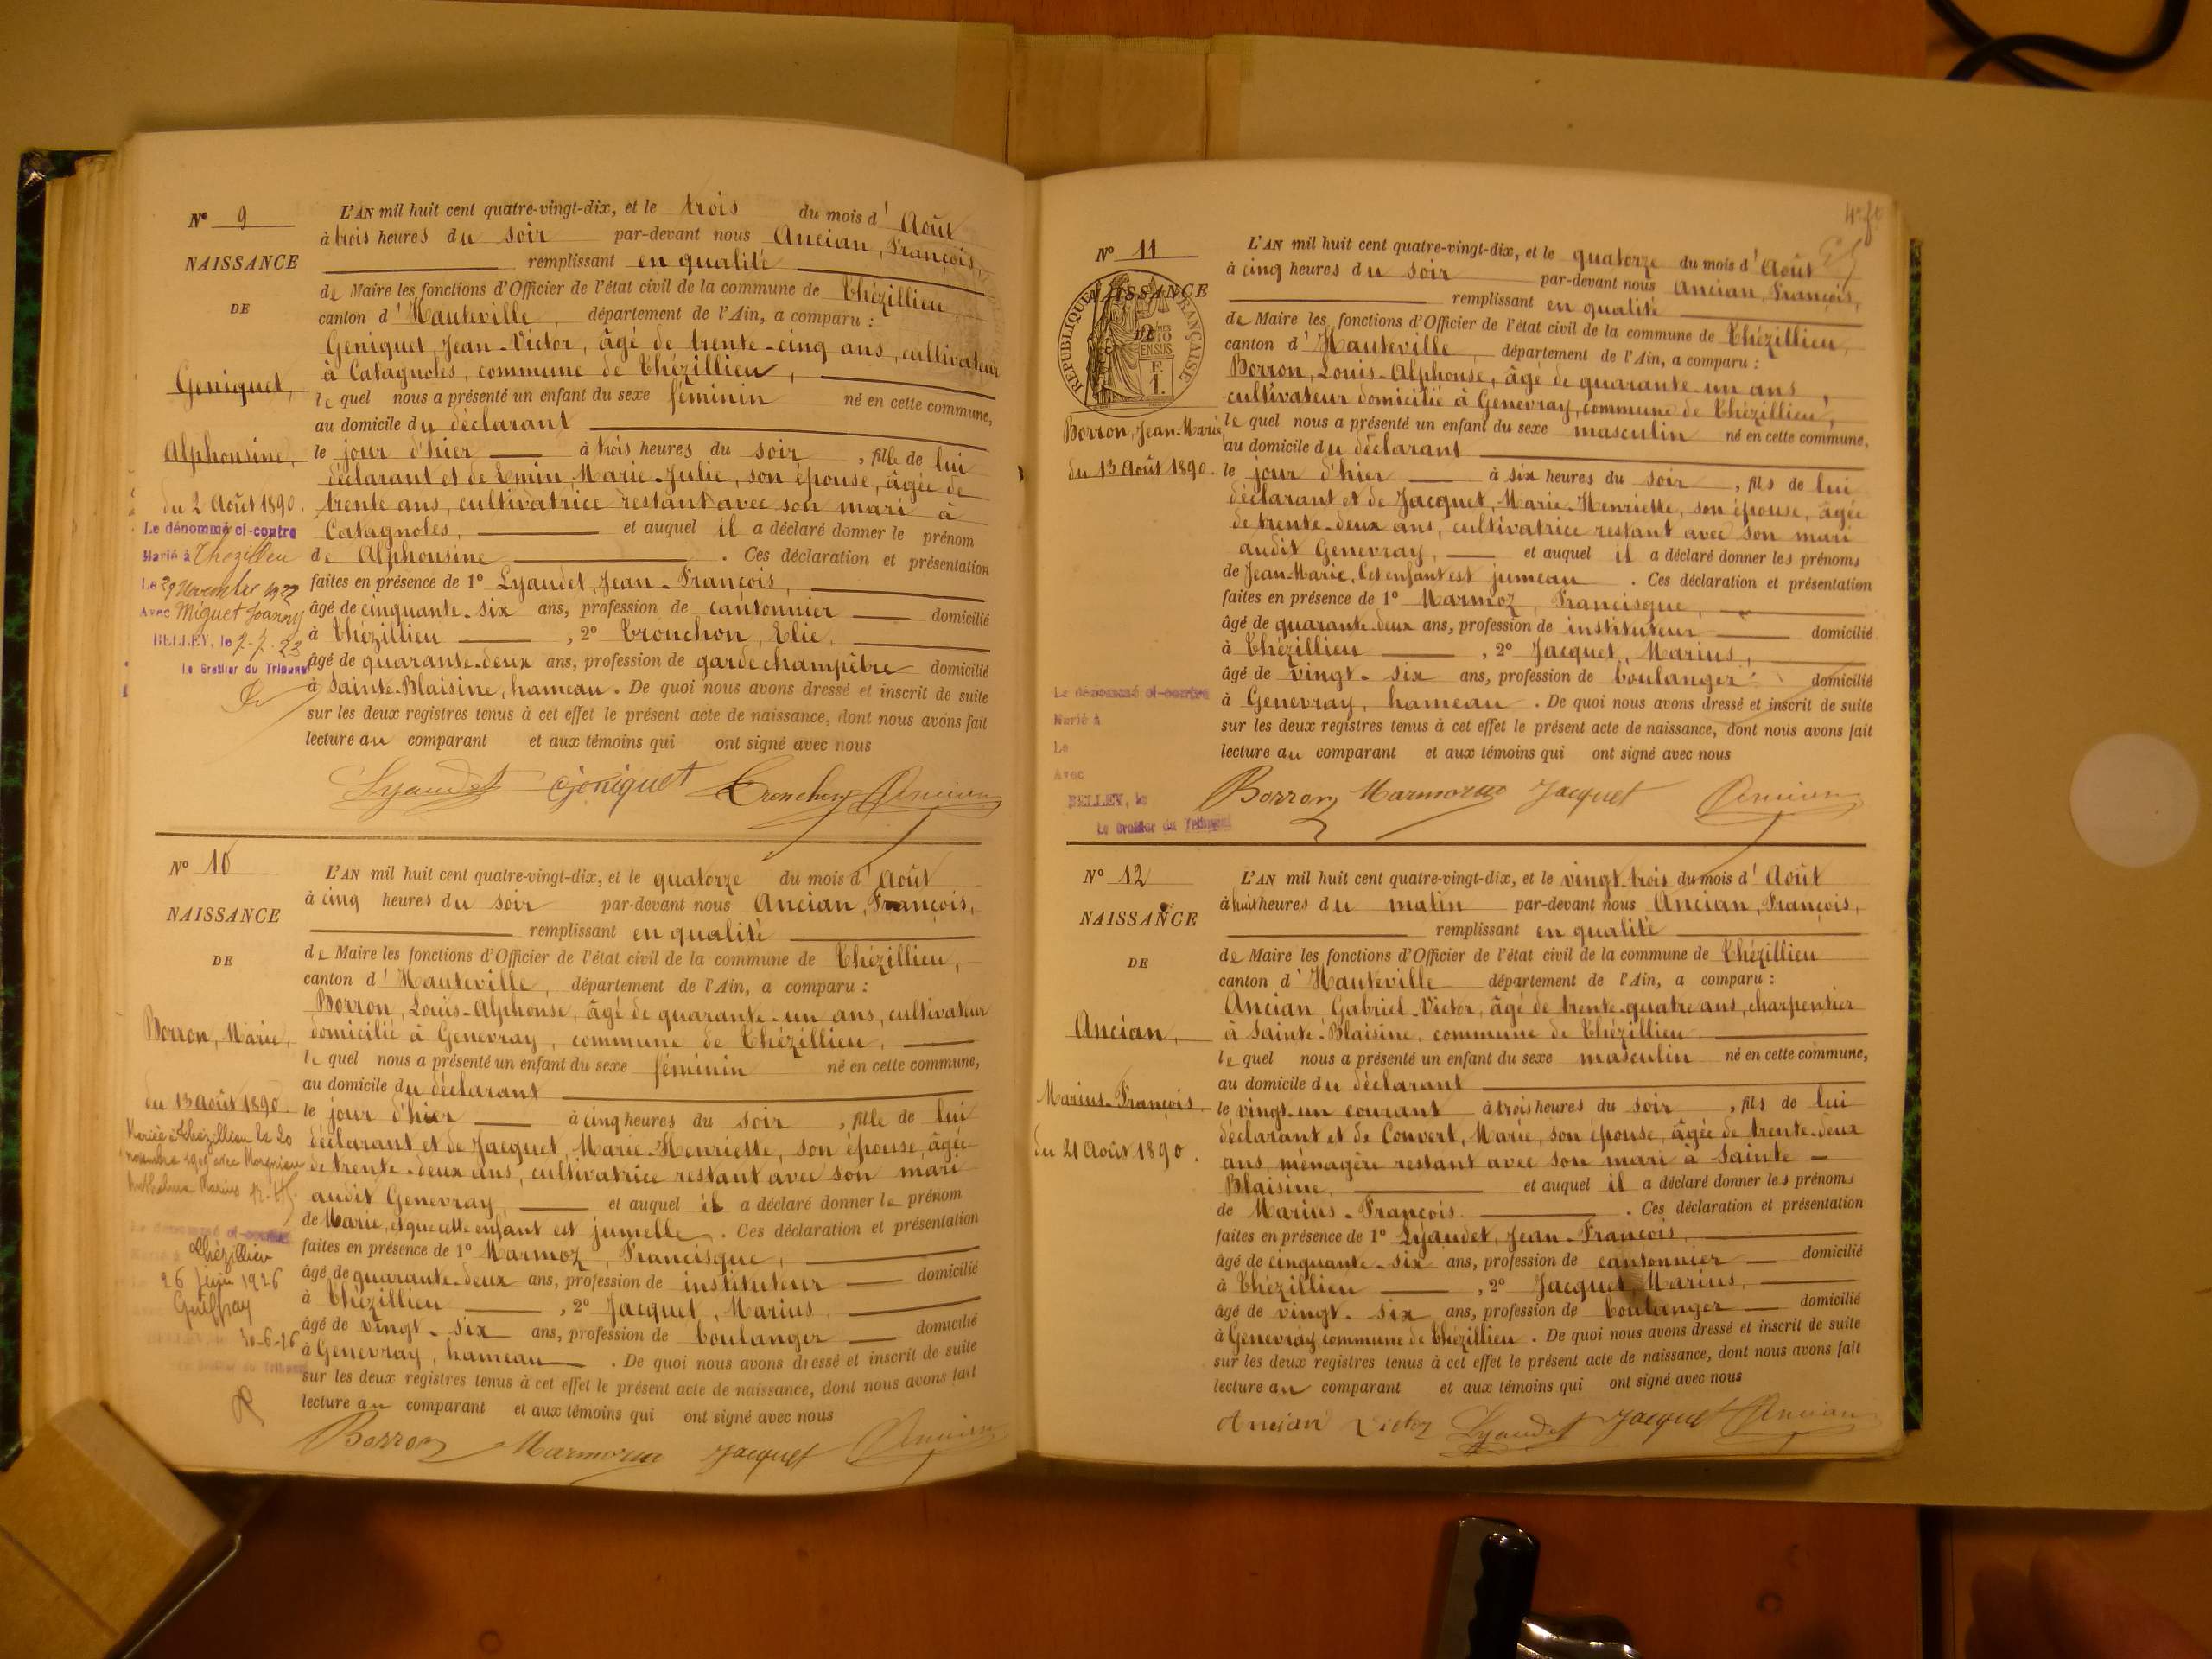 N° 9
NAISSANCE
DE
Geniquet,
Alphonsine,
du 2 Août 1890.
Le dénommé ci-contre
Marié à Thézillieu
Le 29 Novembre 1922
Avec Miguet Joanny
BELLEY, le 2-7-23
Le Greffier du Tribunal
L'AN mil huit cent quatre-vingt-dix, et le trois du mois d'Août
à trois heures du soir par-devant nous Ancian, François,
remplissant en qualité
de Maire les fonctions d'Officier de l'état civil de la commune de Thézillieu,
canton d'Hauteville, département de l'Ain, a comparu :
Geniquet, Jean-Victor, âgé de trente-cinq ans, cultivateur
à Catagnoles, commune de Thézillieu,
lequel nous a présenté un enfant du sexe féminin né en cette commune,
au domicile du déclarant
le jour d'hier à trois heures du soir, fille de lui
déclarant et de Emin, Marie-Julie, son épouse, âgée de
trente ans, cultivatrice restant avec son mari à
Catagnoles, et auquel il a déclaré donner le prénom
de Alphonsine. Ces déclaration et présentation
faites en présence de 1° Lyaudet, Jean-François,
âgé de cinquante-six ans, profession de cantonnier domicilié
à Thézillieu, 2° Tronchon, Elie,
âgé de quarante-deux ans, profession de garde champêtre domicilié
à Sainte-Blaisine, hameau. De quoi nous avons dressé et inscrit de suite
sur les deux registres tenus à cet effet le présent acte de naissance, dont nous avons fait
lecture au comparant et aux témoins qui ont signé avec nous
Lyaudet Geniquet Tronchon Ancian
N° 10
NAISSANCE
DE
Borron, Marie,
du 13 Août 1890.
Mariée à Thézillieu le 20
novembre 1909 avec
Marius
Thézillieu
26 juin 1926
Guiffray
30-6-26
L'AN mil huit cent quatre-vingt-dix, et le quatorze du mois d'Août
à cinq heures du soir par-devant nous Ancian, François,
remplissant en qualité
de Maire les fonctions d'Officier de l'état civil de la commune de Thézillieu,
canton d'Hauteville, département de l'Ain, a comparu :
Borron, Louis-Alphonse, âgé de quarante-un ans, cultivateur
domicilié à Genevray, commune de Thézillieu,
lequel nous a présenté un enfant du sexe féminin né en cette commune,
au domicile du déclarant
le jour d'hier à cinq heures du soir, fille de lui
déclarant et de Jacquet, Marie-Henriette, son épouse, âgée
de trente-deux ans, cultivatrice restant avec son mari
audit Genevray, et auquel il a déclaré donner le prénom
de Marie, et que cette enfant est jumelle. Ces déclaration et présentation
faites en présence de 1° Marmoz, Francisque,
âgé de quarante-deux ans, profession de instituteur domicilié
à Thézillieu, 2° Jacquet, Marius,
âgé de vingt-six ans, profession de boulanger domicilié
à Genevray, hameau. De quoi nous avons dressé et inscrit de suite
sur les deux registres tenus à cet effet le présent acte de naissance, dont nous avons fait
lecture au comparant et aux témoins qui ont signé avec nous
Borron Marmoz Jacquet Ancian
N° 11
NAISSANCE
RÉPUBLIQUE FRANÇAISE
Borron, Jean-Marie,
du 13 Août 1890.
Le dénommé ci-contre
Marié à
Le
Avec
BELLEY, le
Le Greffier du Tribunal
L'AN mil huit cent quatre-vingt-dix, et le quatorze du mois d'Août
à cinq heures du soir par-devant nous Ancian, François,
remplissant en qualité
de Maire les fonctions d'Officier de l'état civil de la commune de Thézillieu,
canton d'Hauteville, département de l'Ain, a comparu :
Borron, Louis-Alphonse, âgé de quarante-un ans,
cultivateur domicilié à Genevray, commune de Thézillieu,
lequel nous a présenté un enfant du sexe masculin né en cette commune,
au domicile du déclarant
le jour d'hier à six heures du soir, fils de lui
déclarant et de Jacquet, Marie-Henriette, son épouse, âgée
de trente-deux ans, cultivatrice restant avec son mari
audit Genevray, et auquel il a déclaré donner les prénoms
de Jean-Marie, Cet enfant est jumeau. Ces déclaration et présentation
faites en présence de 1° Marmoz, Francisque,
âgé de quarante-deux ans, profession de instituteur domicilié
à Thézillieu, 2° Jacquet, Marius,
âgé de vingt-six ans, profession de boulanger domicilié
à Genevray, hameau. De quoi nous avons dressé et inscrit de suite
sur les deux registres tenus à cet effet le présent acte de naissance, dont nous avons fait
lecture au comparant et aux témoins qui ont signé avec nous
Borron Marmoz Jacquet Ancian
N° 12
NAISSANCE
DE
Ancian,
Marius-François
du 21 Août 1890.
L'AN mil huit cent quatre-vingt-dix, et le vingt-trois du mois d'Août
à huit heures du matin par-devant nous Ancian, François,
remplissant en qualité
de Maire les fonctions d'Officier de l'état civil de la commune de Thézillieu
canton d'Hauteville département de l'Ain, a comparu :
Ancian Gabriel-Victor, âgé de trente-quatre ans, charpentier
à Sainte-Blaisine, commune de Thézillieu,
lequel nous a présenté un enfant du sexe masculin né en cette commune,
au domicile du déclarant
le vingt-un courant à trois heures du soir, fils de lui
déclarant et de Convert, Marie, son épouse, âgée de trente-deux
ans, ménagère restant avec son mari à Sainte-
Blaisine, et auquel il a déclaré donner les prénoms
de Marius-François. Ces déclaration et présentation
faites en présence de 1° Lyaudet, Jean-François,
âgé de cinquante-six ans, profession de cantonnier domicilié
à Thézillieu, 2° Jacquet, Marius,
âgé de vingt-six ans, profession de boulanger domicilié
à Genevray, commune de Thézillieu. De quoi nous avons dressé et inscrit de suite
sur les deux registres tenus à cet effet le présent acte de naissance, dont nous avons fait
lecture au comparant et aux témoins qui ont signé avec nous
Ancian Victor Lyaudet Jacquet Ancian